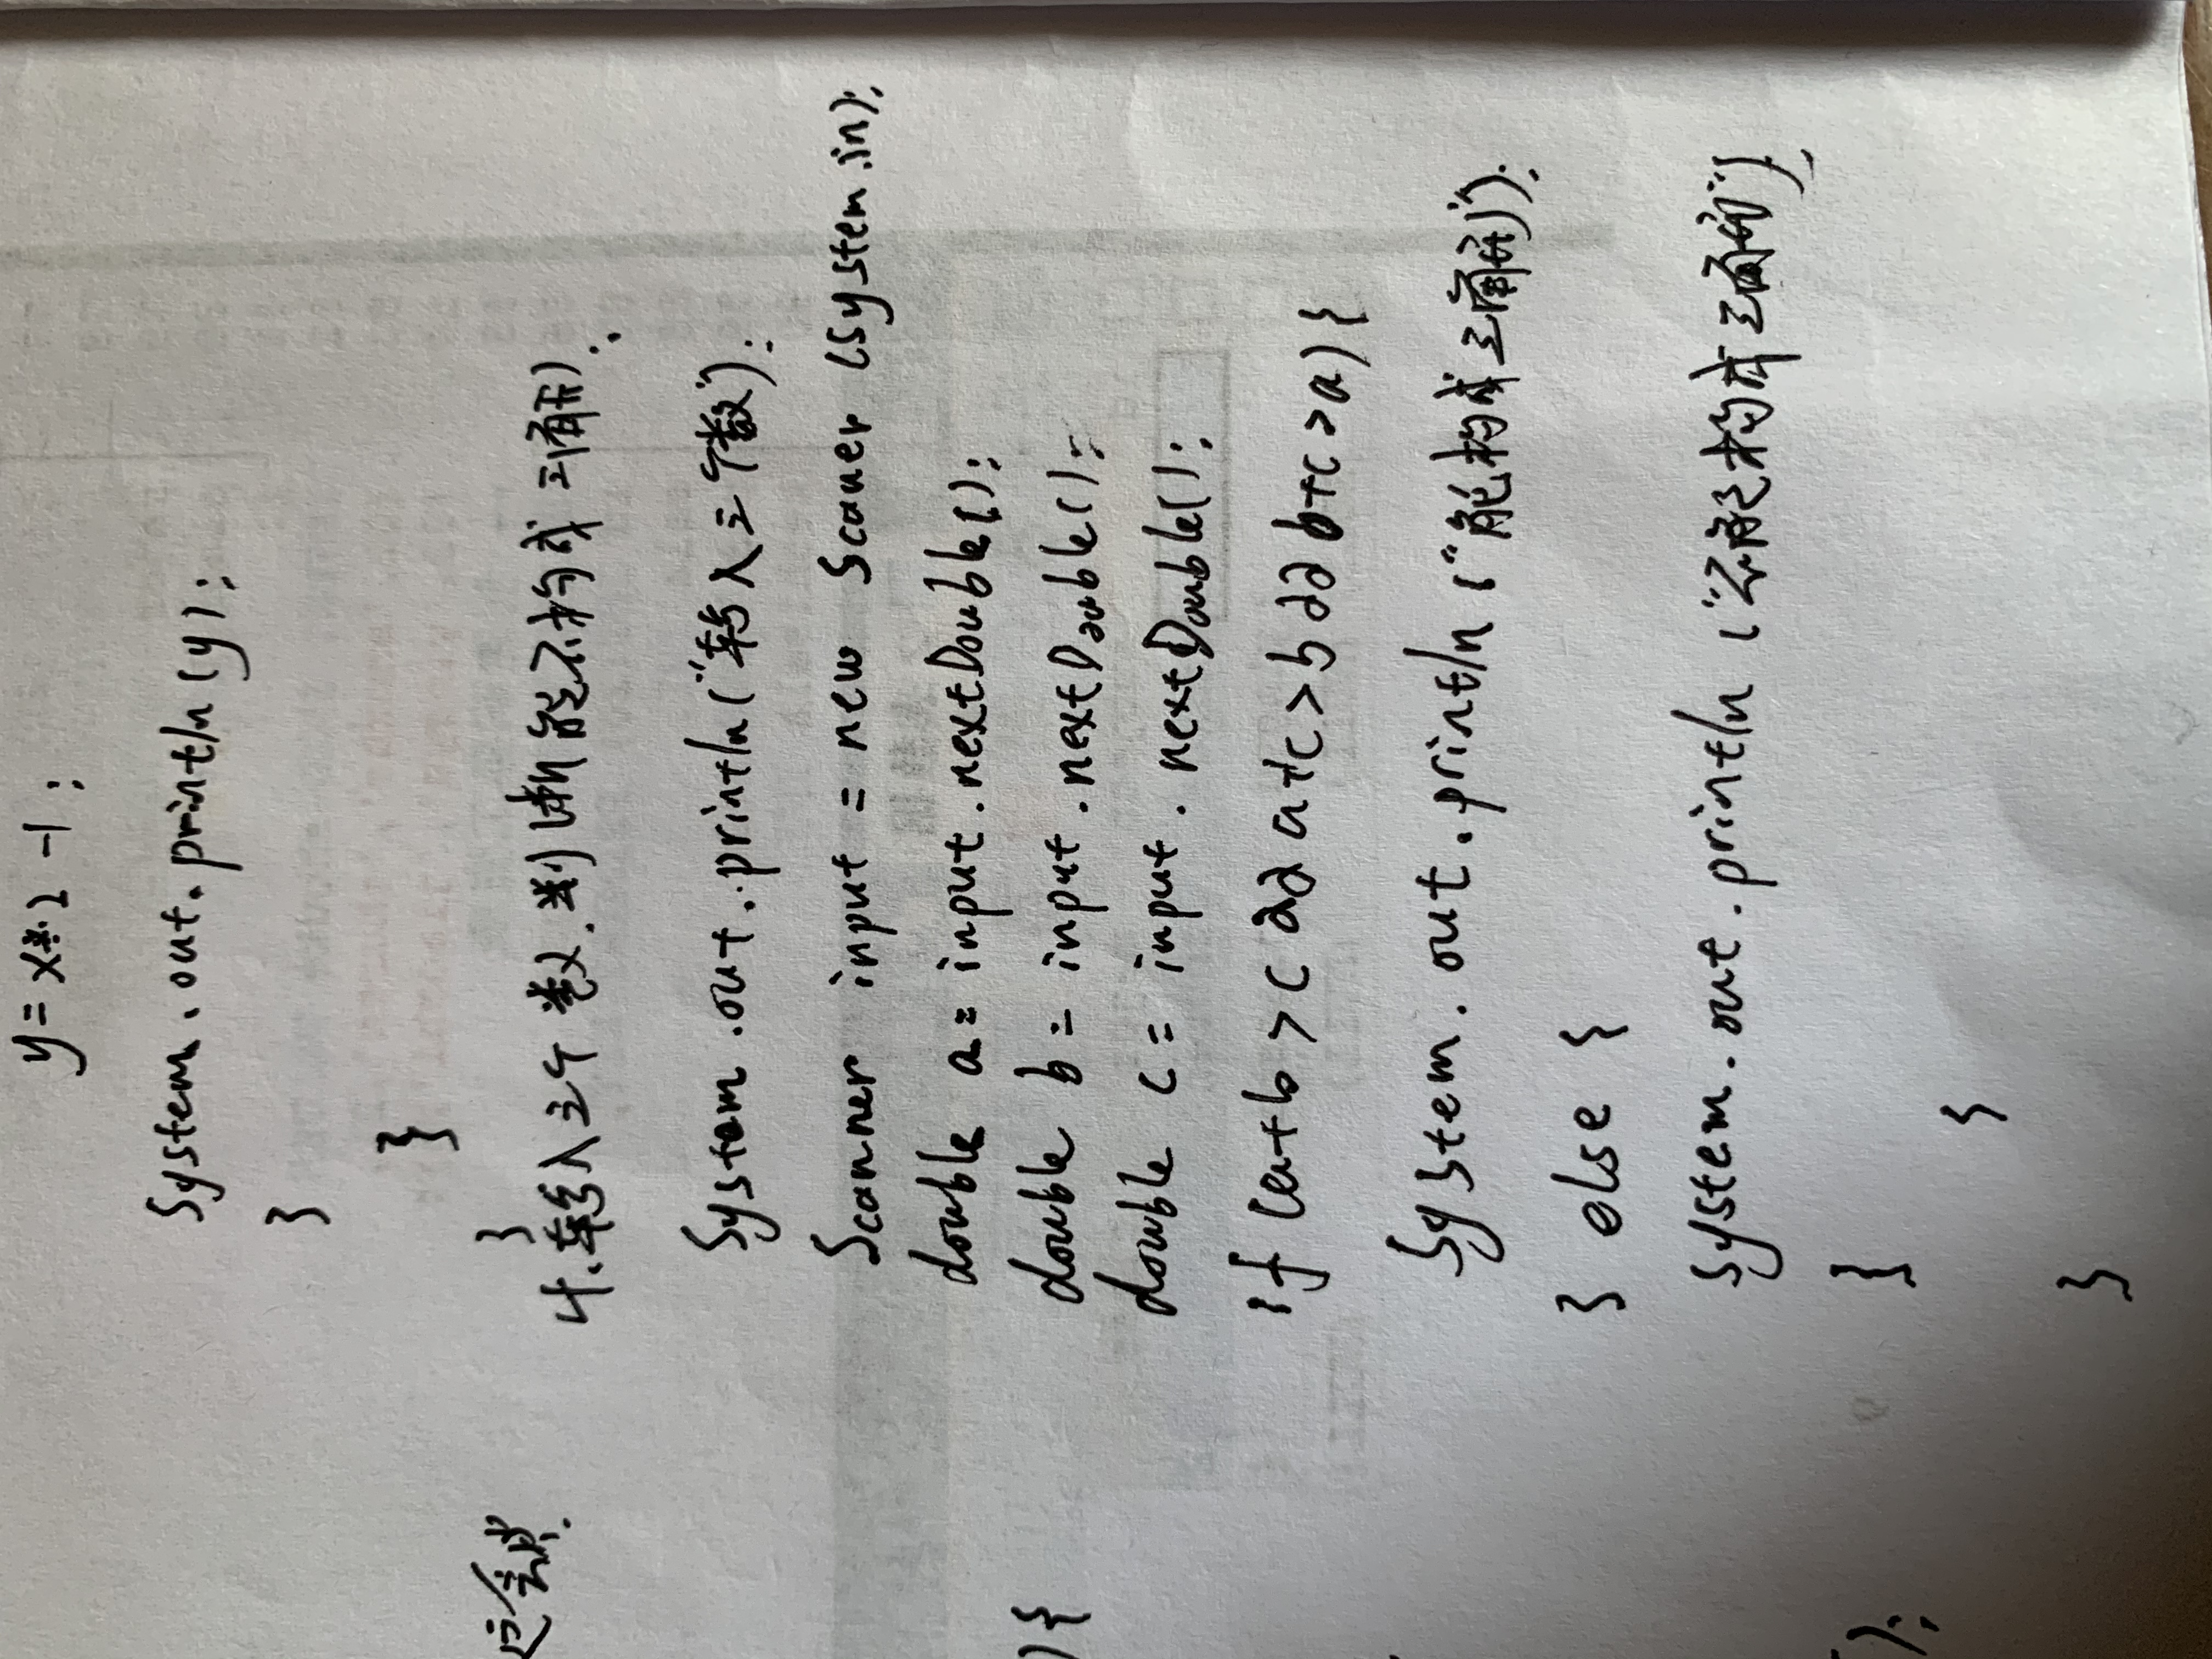 y=x*2-1;
System.out.println(y);
}
}
}
4.输入三个数.判断能不构成三角形.
System.out.println("输入三个数");
Scanner input = new Scanner (System.in);
double a= input.nextDouble();
double b= input.nextDouble();
double c= input.nextDouble();
if (a+b>c && a+c>b && b+c>a){
System.out.println("能构成三角形");
} else {
System.out.println("不能构成三角形");
}
}
}
){
);